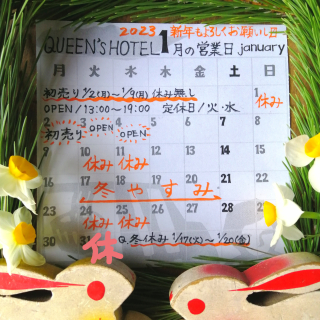 2023 新年もよろしくお願いし
QUEEN'S HOTEL 1月の営業日 january
月 火 水 木 金 土 日
初売り 1/2(月)〜1/9(月)休み無し 1 休み
OPEN / 13:00〜19:00 定休日 / 火・水
2 3 4 5 6 7 8
初売り OPEN OPEN
9 10 11 12 13 14 15
休み 休み
16 17 18 19 20 21 22
冬やすみ
23 24 25 26 27 28
休み 休み
30 31 休 冬休み 1/17(火)〜1/20(金)